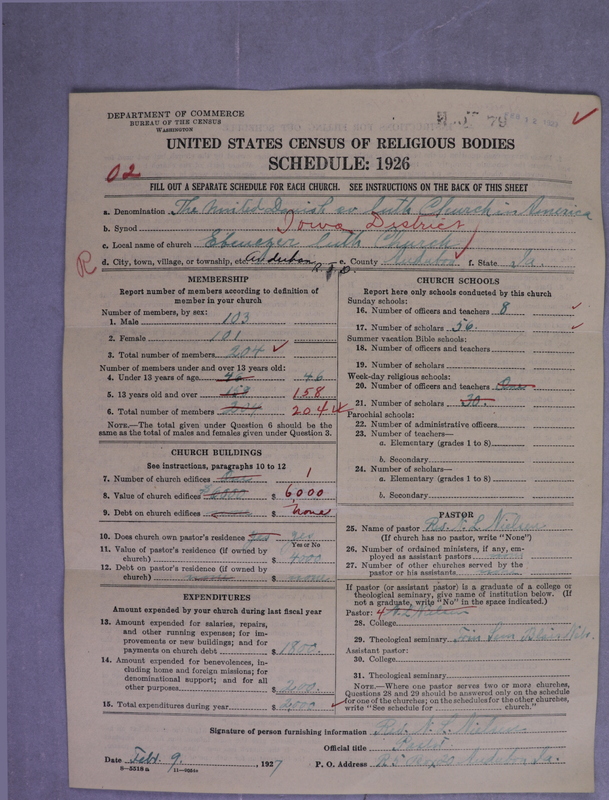 DEPARTMENT OF COMMERCE
BUREAU OF THE CENSUS
WASHINGTON
79
UNITED STATES CENSUS OF RELIGIOUS BODIES
SCHEDULE: 1926
02
FILL OUT A SEPARATE SCHEDULE FOR EACH CHURCH. SEE INSTRUCTIONS ON THE BACK OF THIS SHEET
a. Denomination The United Danish ev. Luth Church in America
b. Synod Iowa District
c. Local name of church Ebenezer Luth Church
R
d. City, town, village, or township, etc. Audubon R.F.D. e. County Audubon f. State Ia.
MEMBERSHIP
Report number of members according to definition of
member in your church
Number of members, by sex:
1. Male 103
2. Female 101
3. Total number of members 204
Number of members under and over 13 years old:
4. Under 13 years of age 46 46
5. 13 years old and over 158
6. Total number of members 204 204
NOTE.—The total given under Question 6 should be the
same as the total of males and females given under Question 3.
CHURCH BUILDINGS
See instructions, paragraphs 10 to 12
7. Number of church edifices 1
8. Value of church edifices $ 6,000
9. Debt on church edifices $ none
10. Does church own pastor's residence yes yes
Yes or No
11. Value of pastor's residence (if owned by
church) $ 4000
12. Debt on pastor's residence (if owned by
church) $ none
EXPENDITURES
Amount expended by your church during last fiscal year
13. Amount expended for salaries, repairs,
and other running expenses; for im-
provements or new buildings; and for
payments on church debt $ 1800.
14. Amount expended for benevolences, in-
cluding home and foreign missions; for
denominational support; and for all
other purposes $ 200.
15. Total expenditures during year $ 2000
CHURCH SCHOOLS
Report here only schools conducted by this church
Sunday schools:
16. Number of officers and teachers 8
17. Number of scholars 56.
Summer vacation Bible schools:
18. Number of officers and teachers
19. Number of scholars
Week-day religious schools:
20. Number of officers and teachers One
21. Number of scholars 30.
Parochial schools:
22. Number of administrative officers
23. Number of teachers—
a. Elementary (grades 1 to 8)
b. Secondary
24. Number of scholars—
a. Elementary (grades 1 to 8)
b. Secondary
PASTOR
25. Name of pastor Rev. N. L. Nielsen
(If church has no pastor, write "None")
26. Number of ordained ministers, if any, em-
ployed as assistant pastors
27. Number of other churches served by the
pastor or his assistants
If pastor (or assistant pastor) is a graduate of a college or
theological seminary, give name of institution below. (If
not a graduate, write "No" in the space indicated.)
Pastor: N. L. Nielsen
28. College
29. Theological seminary Trin Sem Blair Neb.
Assistant pastor:
30. College
31. Theological seminary
NOTE.—Where one pastor serves two or more churches,
Questions 28 and 29 should be answered only on the schedule
for one of the churches; on the schedules for the other churches,
write "See schedule for church."
Signature of person furnishing information Rev. N. L. Nielsen
Official title Pastor
Date Febr. 9. , 1927 P. O. Address R 5 Audubon Ia.
8—5518 a